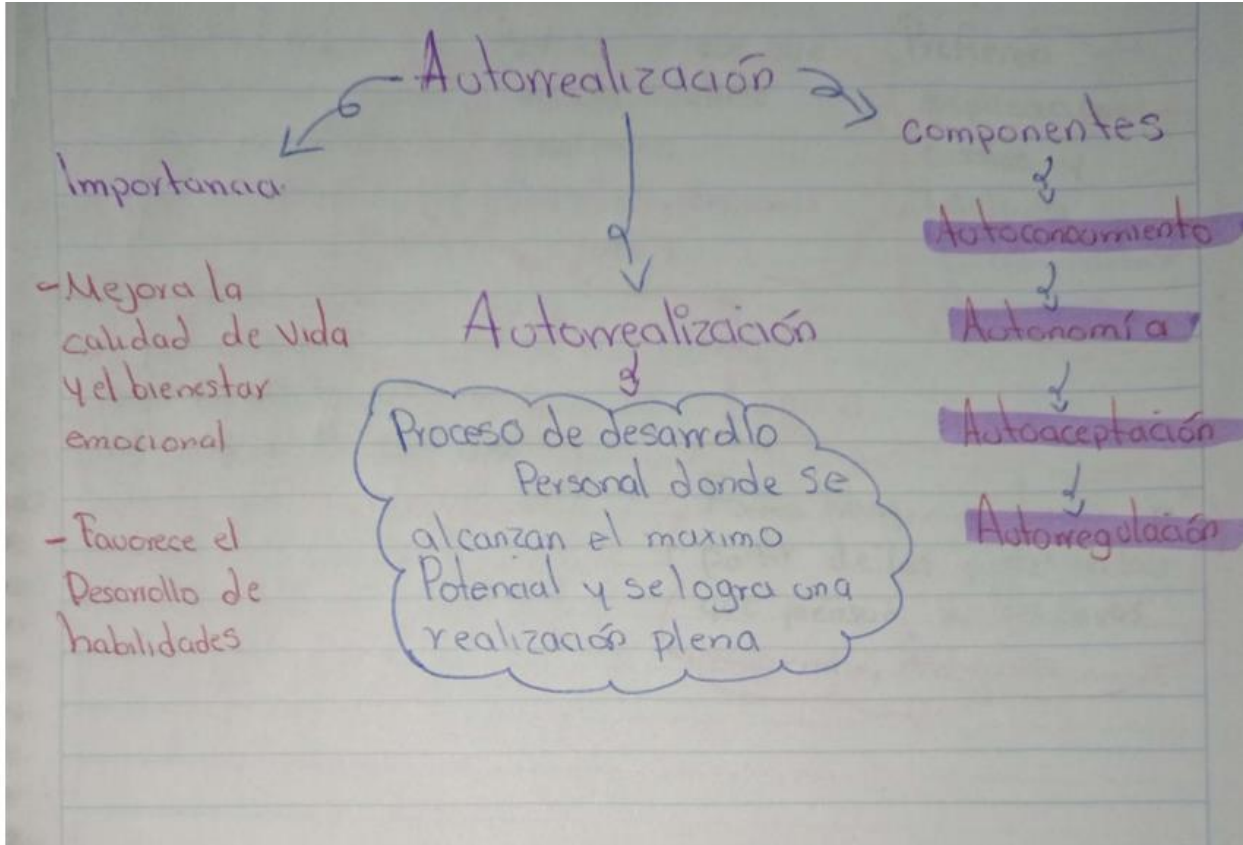 Autorrealización
Importancia
- Mejora la
calidad de vida
y el bienestar
emocional
- Favorece el
Desarrollo de
habilidades
Autorrealización
Proceso de desarrollo
Personal donde se
alcanzan el maximo
Potencial y se logra una
realización plena
componentes
Autoconocimiento
Autonomía
Autoaceptación
Autorregulación